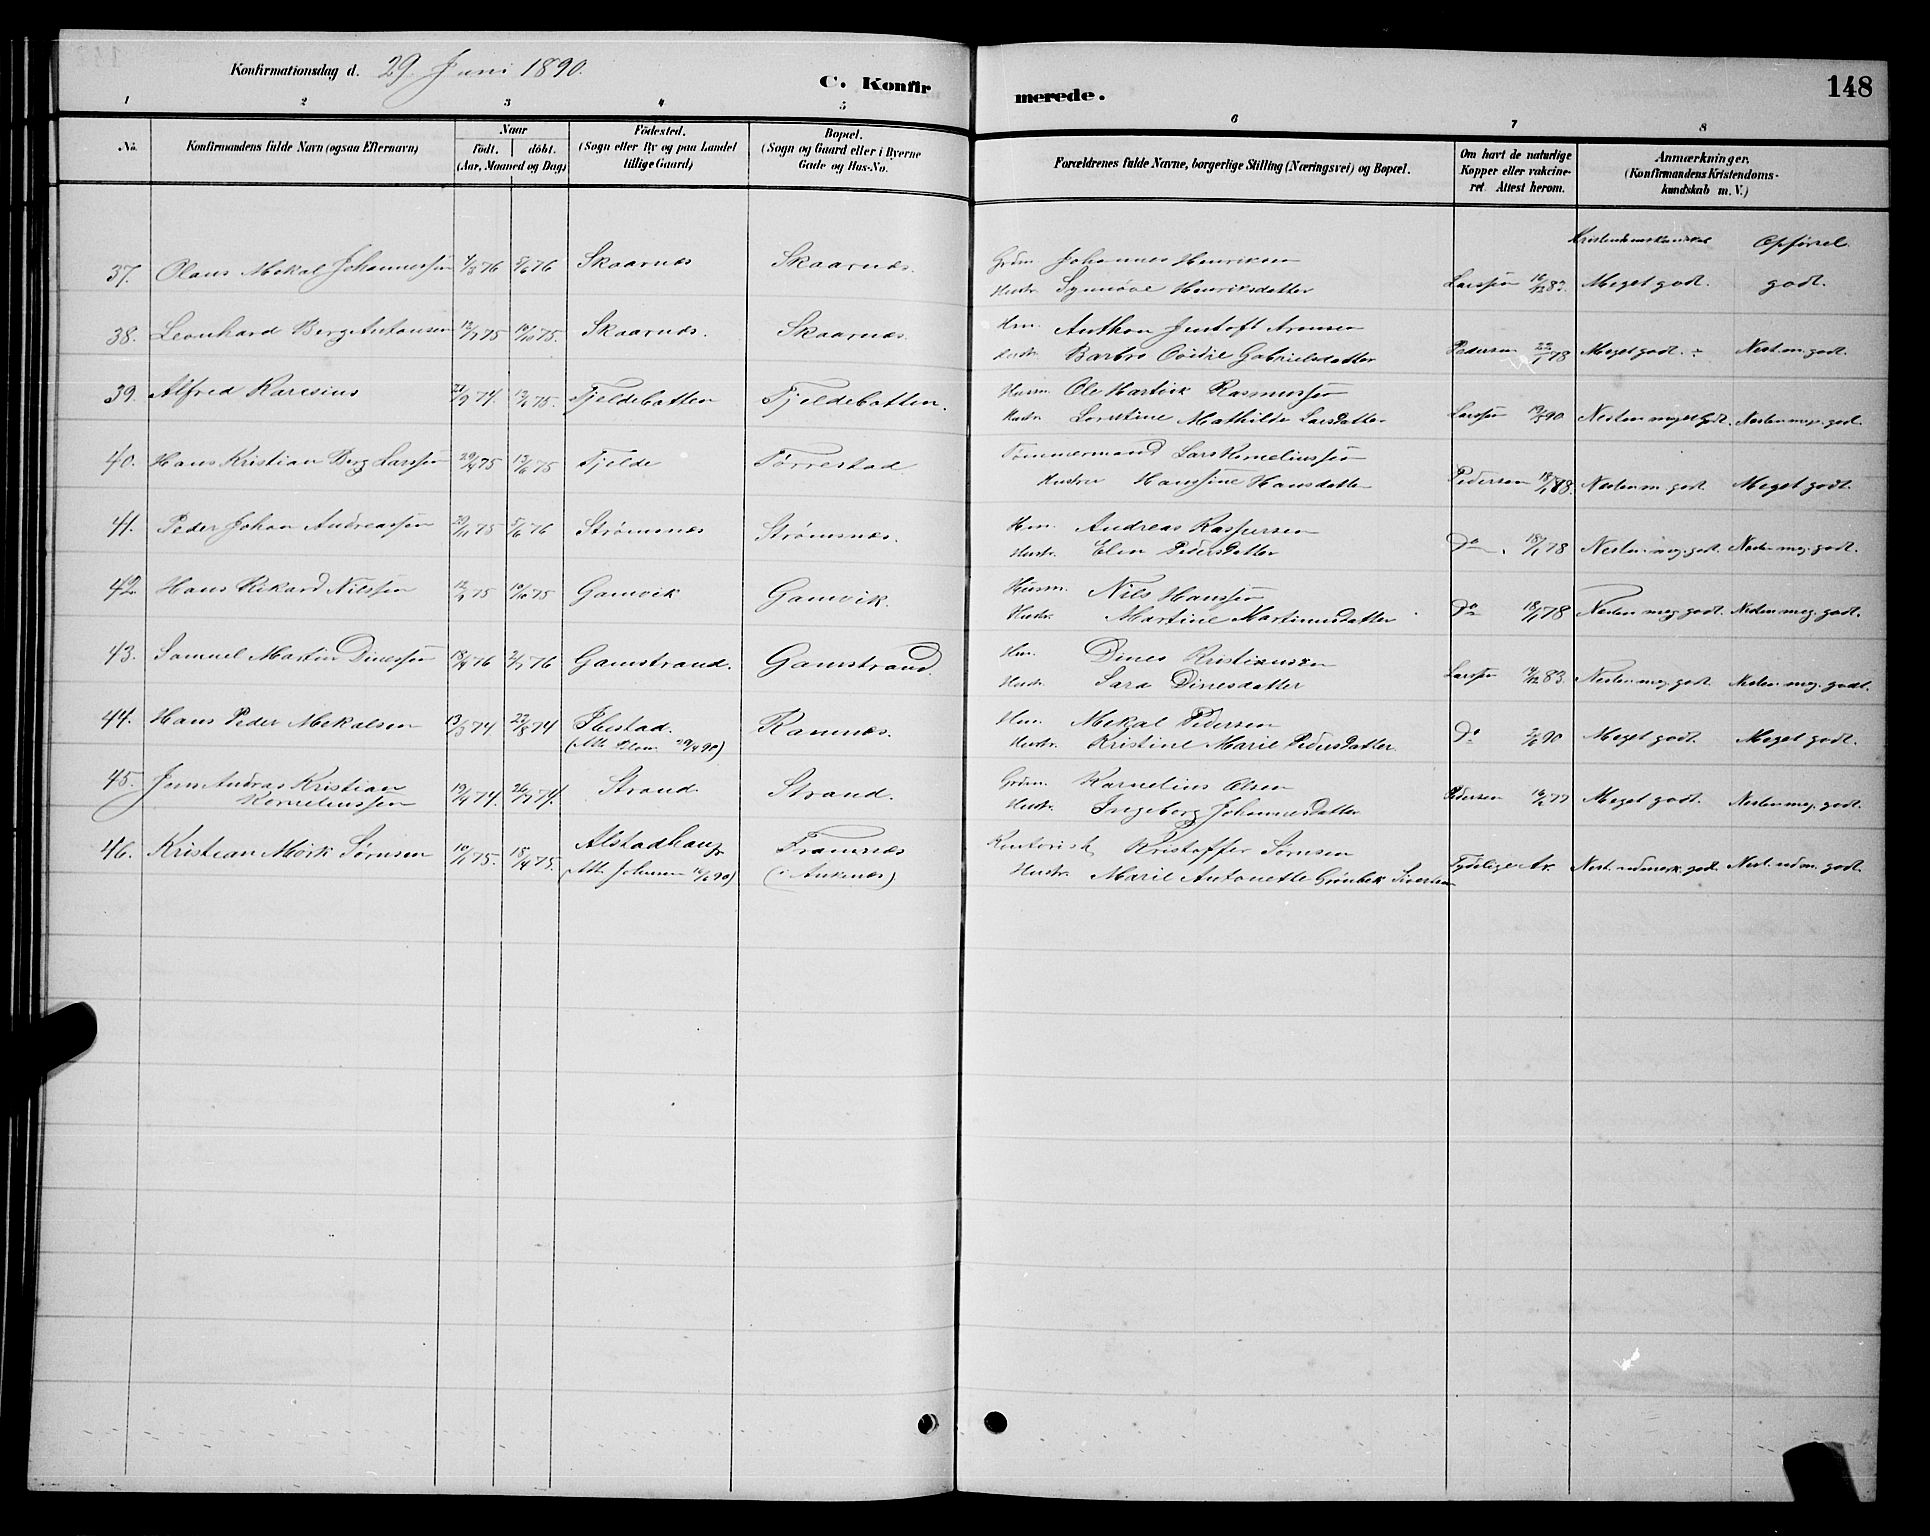 Konfirmationsdag d. 29. Juni 1890.
C. Konfir
merede.
148
1 2 3 4 5
6 7 8
No.
Konfirmandens fulde Navn (ogsaa Efternavn)
Naar
födt. döbt.
(Aar, Maaned og Dag)
Födested.
(Sogn eller By og paa Landet
tillige Gaard)
Bopæl.
(Sogn og Gaard eller i Byerne
Gade og Hus-No.
Forældrenes fulde Navne, borgerlige Stilling (Næringsvei) og Bopæl.
Om havt de naturlige
Kopper eller vakcine-
ret. Attest herom.
Anmærkninger.
(Konfirmandens Kristendoms-
kundskab m. V.)
Kristendomskundskab Opførsel.
37. Olaus Mekal Johannessøn 76 76 Skaarnæs Skaarnæs.
Grdm. Johannes Henriksen
Hustr. Synnøve Henriksdatter Larssøn 83. Meget godt. godt.
38. Leonhard Berg Antonsen 75 75. Skaarnæs. Skaarnæs.
Hm. Anthon Jentoft Aronsen
Hustr. Barbro Gabrielsdatter Pedersen 22/1 78 Meget godt. ÷ Nest. m. godt.
39. Alfred Karesius 74. 75. Fjeldebatten Fjeldebatten.
Husm. Ole Hartvik Rasmussøn
Hustr. Mathilde Larsdatter Larssøn 90 Nesten meget godt. Nesten meg. godt.
40. Hans Kristian Berg Larssøn 75 75 Fjelde Tørrestad
Tømmermand Lars Korneliussøn
Hustru Hansine Hansdatter Pedersen 88. Nesten m. godt. Meget godt.
41. Peder Johan Andreassøn 29/11 75 5/6 76 Strømsnæs Strømsnæs.
Hm. Andreas Kaspersen
Hustr. Elen Pedersdatter Do. 18/1 78 Nesten meg. godt. Nesten meg. godt.
42. Hans Rikard Nilssøn 75 10/10 75 Gamvik Gamvik.
Husm. Nils Hanssøn
Hustr. Martine Martinusdatter Do 18/1 78 Nesten meg. godt. Nesten meg. godt.
43. Samuel Martin Dinessøn 76 76 Gamstrand. Gamstrand.
Hm. Dines Kristiansen
Hustr. Sara Dinesdatter Larssøn 83. Nesten meg. godt. Nesten meg. godt.
44. Hans Peder Mekalsen 13/3 74 23/8 74 Ibestad. Ramnæs.
(Att. 90)
Hm. Mekal Pedersen
Hustr. Kristine Marie Pedersdatter Do 90 Meget godt. Meget godt.
45. Jens Andreas Kristian
Korneliussøn 19/4 74. 26/7 74. Strand. Strand.
Grdm. Kornelius Olsen
Hustr. Ingeborg Johannesdatter Pedersen 77 Meget godt. Nesten meg. godt.
46. Kristian Mørk Sørnsen 10/1 75. 18/4 75. Alstadhaug Framnæs
(Att. Johnsen 90) (i Ankenæs)
Kontorist Kristoffer Sørnsen
Hustr. Marie Antonette Grönbek Sivertsen Tydelige Ar. Nest. udmerk. godt. Nest. udm. godt.